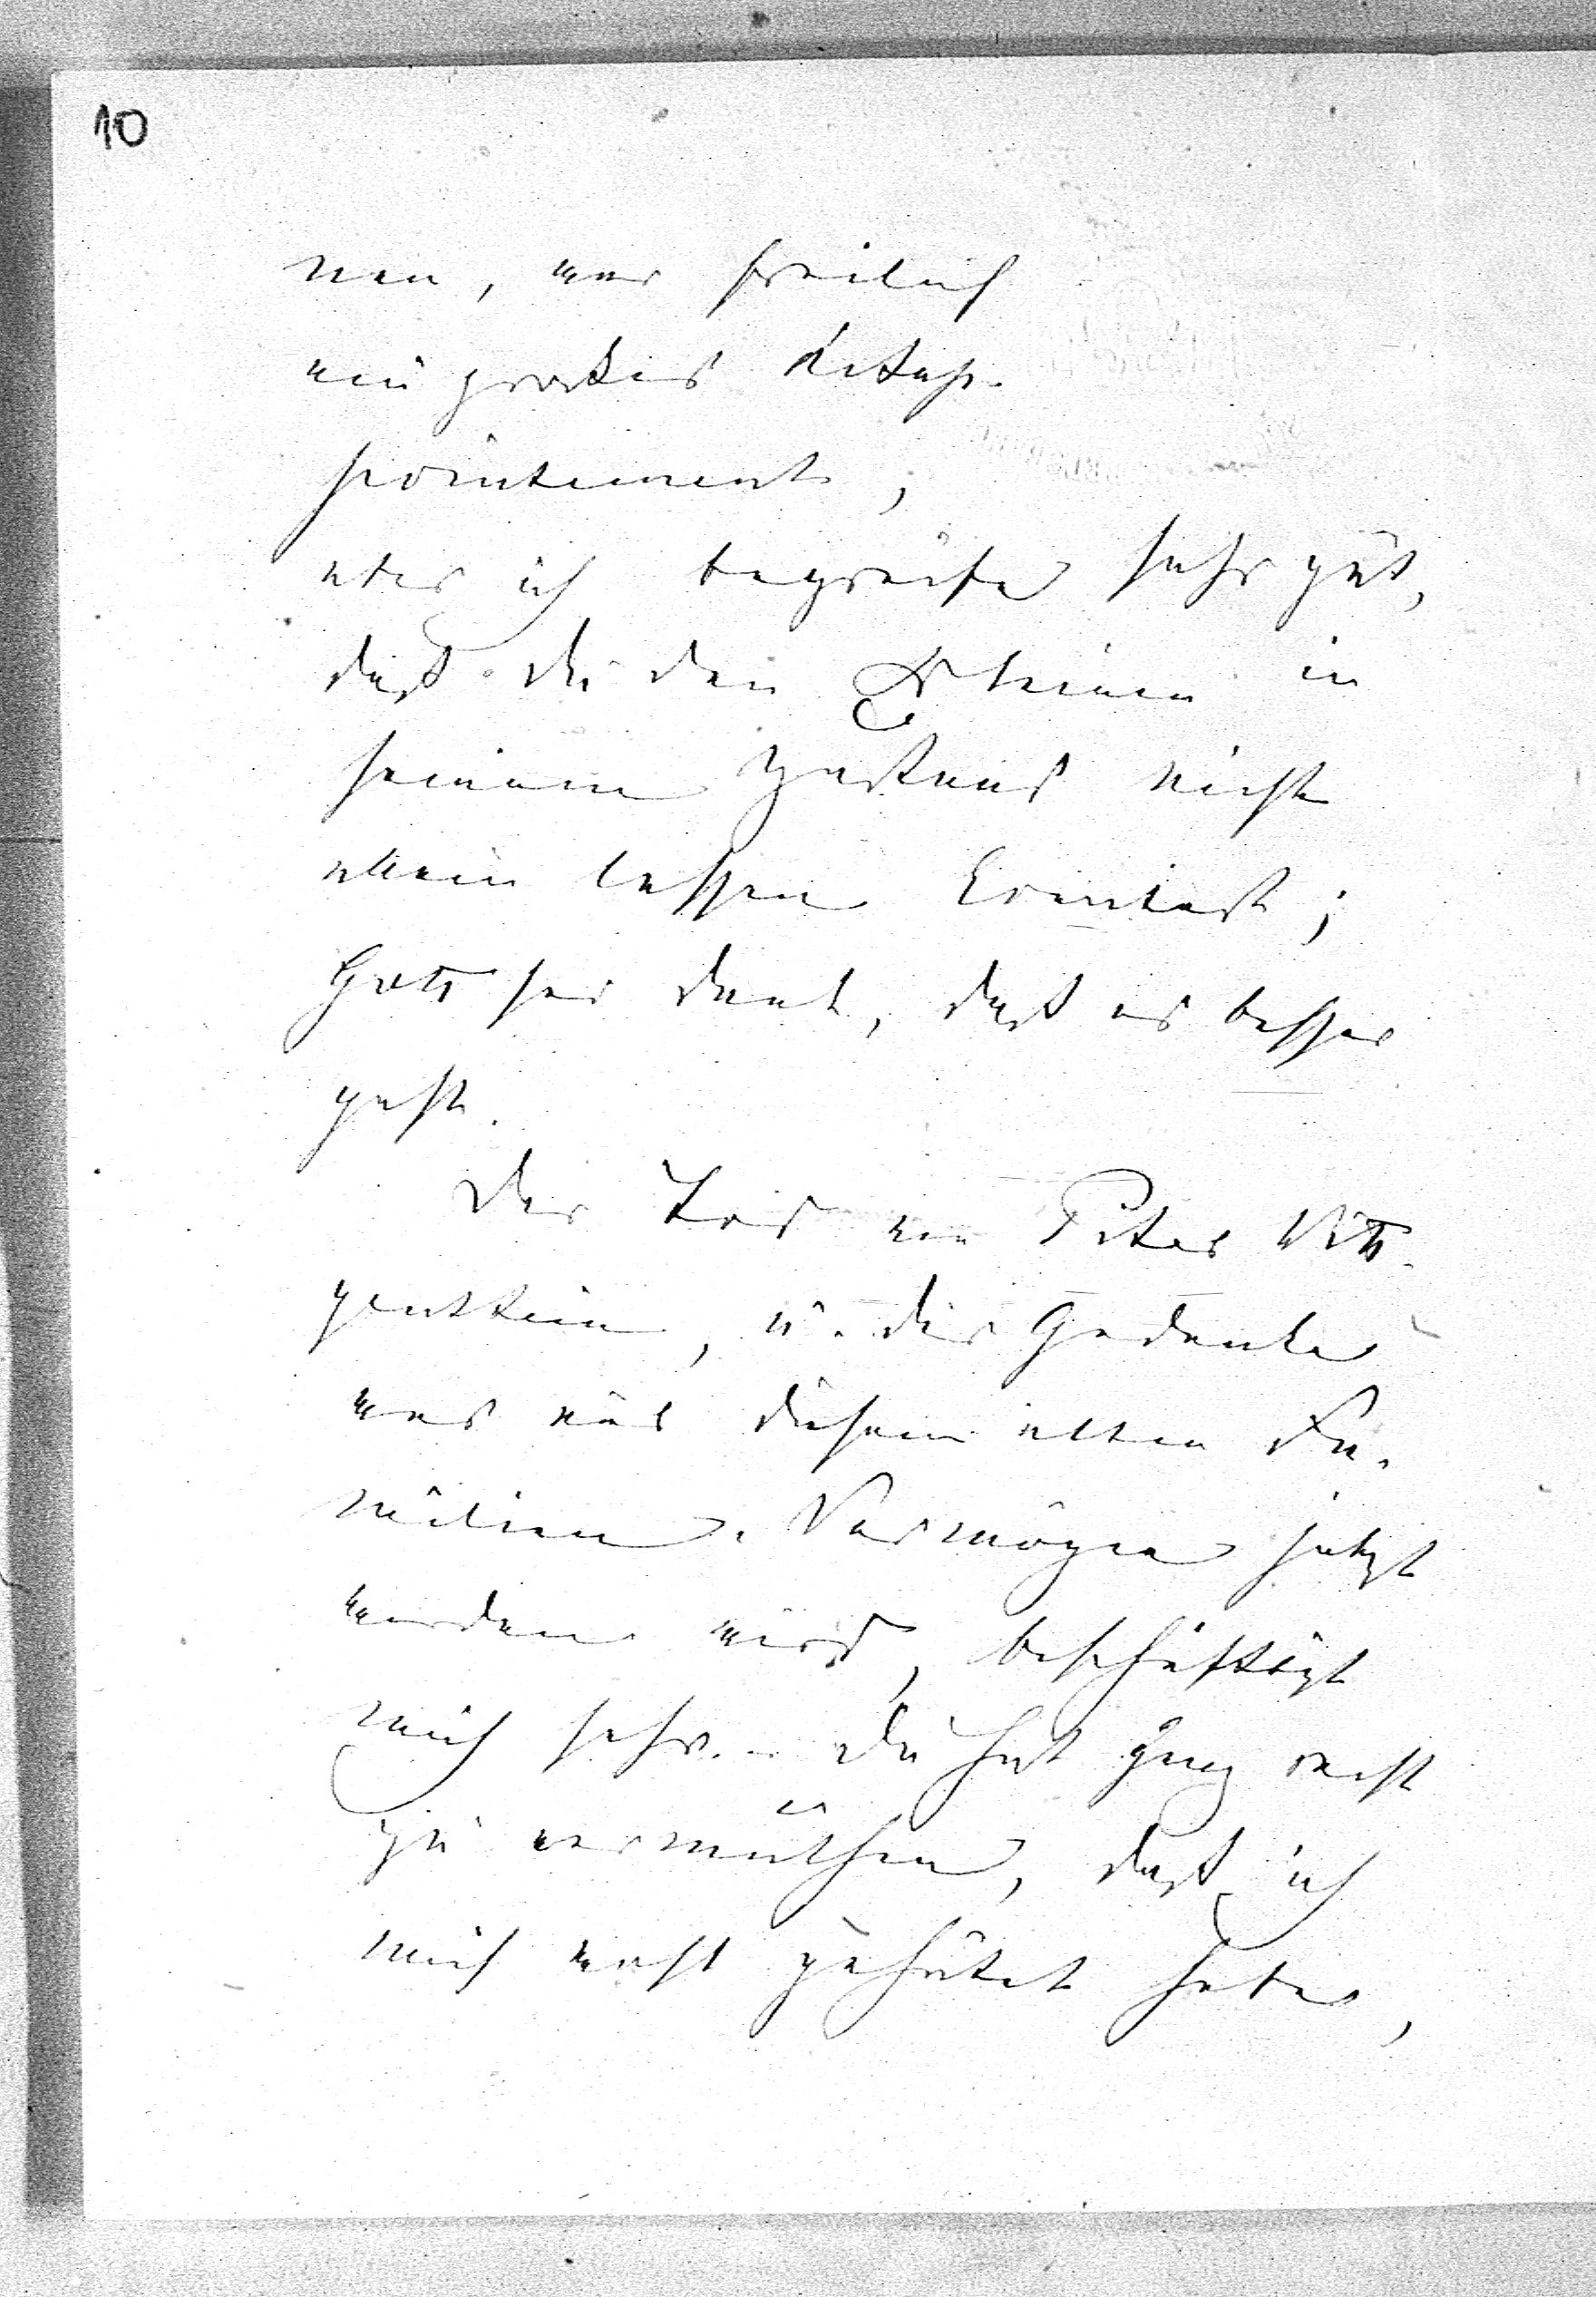 10
nen, war freilich
ein großes Désap-
pointement,
aber ich begreife sehr gut,
daß Du den Kleinen in
seinem Zustand nicht
allein lassen konntest;
Gott sei Dank, daß es besser
geht.
Der Tod von Peter Witt-
genstein, u. der Gedanke
was aus diesem alten Fa-
milien-Vermögen jetzt
werden wird, beschäftigt
mich sehr. – Du hast ganz recht
zu vermuthen, daß ich
mich wohl gehütet habe,